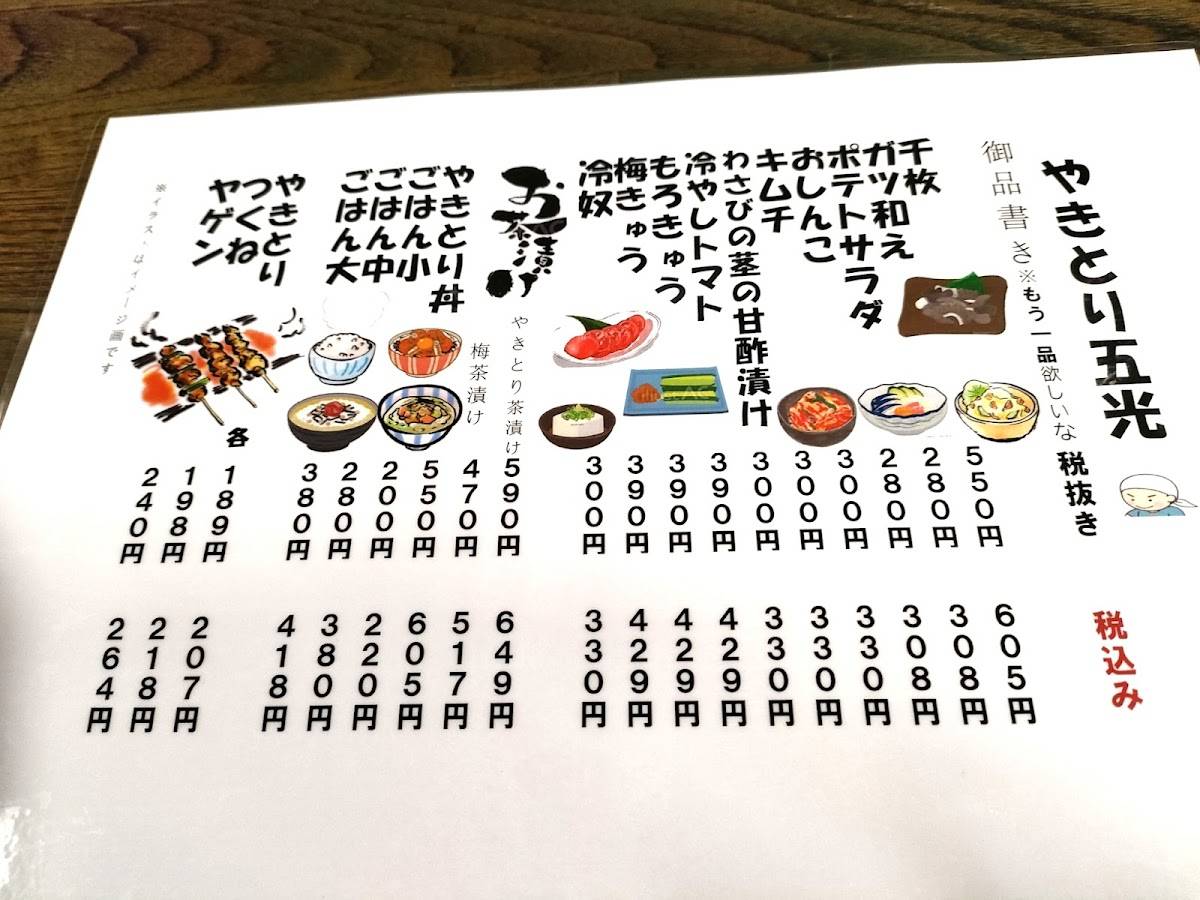 やきとり五光
御品書き※もう一品欲しいな 税抜き 税込み
千枚 550円 605円
ガツ和え 280円 308円
ポテトサラダ 280円 308円
おしんこ 300円 330円
キムチ 300円 330円
わさびの茎の甘酢漬け 300円 330円
冷やしトマト 390円 429円
もろきゅう 390円 429円
梅きゅう 390円 429円
冷奴 300円 330円
お茶漬け
やきとり茶漬け 590円 649円
梅茶漬け 470円 517円
やきとり丼 550円 605円
ごはん小 200円 220円
ごはん中 280円 380円
ごはん大 380円 418円
やきとり 各 189円 207円
つくね 198円 218円
ヤゲン 240円 264円
※イラストはイメージ画です